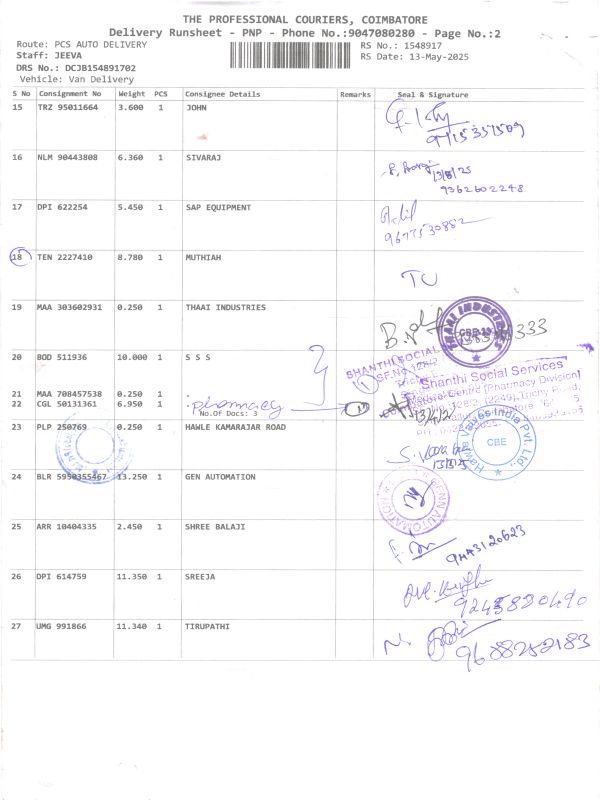 THE PROFESSIONAL COURIERS, COIMBATORE
Delivery Runsheet - PNP - Phone No.:9047080280 - Page No.:2
Route: PCS AUTO DELIVERY RS No.: 1548917
Staff: JEEVA RS Date: 13-May-2025
DRS No.: DCJB154891702
Vehicle: Van Delivery
S No Consignment No Weight PCS Consignee Details Remarks Seal & Signature
15 TRZ 95011664 3.600 1 JOHN
9715357509
16 NLM 90443808 6.360 1 SIVARAJ
13/5/25
9362602248
17 DPI 622254 5.450 1 SAP EQUIPMENT
9677530882
18 TEN 2227410 8.780 1 MUTHIAH
TU
19 MAA 303602931 0.250 1 THAAI INDUSTRIES
THAAI INDUSTRIES
20 BOD 511936 10.000 1 S S S
SHANTHI SOCIAL
Shanthi Social Services
(Pharmacy Division)
21 MAA 708457538 0.250 1 .
22 CGL 50131361 6.950 1 . pharmacy
No.Of Docs: 3
23 PLP 250769 0.250 1 HAWLE KAMARAJAR ROAD
Hawle Valves India Pvt. Ltd.,
CBE
13/5/25
24 BLR 5950355467 13.250 1 GEN AUTOMATION
GENN AUTOMATION
25 ARR 10404335 2.450 1 SHREE BALAJI
9443120623
26 DPI 614759 11.350 1 SREEJA
9245820490
27 UMG 991866 11.340 1 TIRUPATHI
9688252183